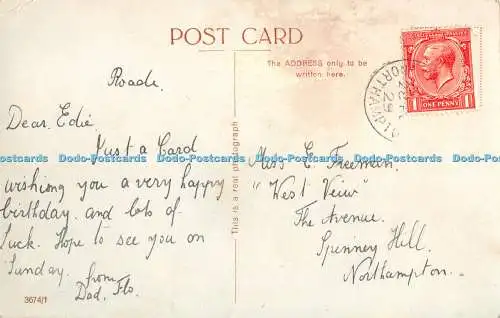 POST CARD
The ADDRESS only to be
written here.
Roade
Dear Edie
Just a Card
wishing you a very happy
birthday and lots of
luck. Hope to see you on
Sunday.
from
Dad, Flo.
3674/1
This is a real photograph
Miss E. Freeman.
"West Veiw"
The Avenue.
Spinney Hill.
Northampton.
ONE PENNY
1 1
NORTHAMPTON
29
Dodo-Postcards Dodo-Postcards Dodo-Postcards Dodo-Postcards Dodo-Postcards
Dodo-Postcards Dodo-Postcards Dodo-Postcards Dodo-Postcards Dodo-Postcards